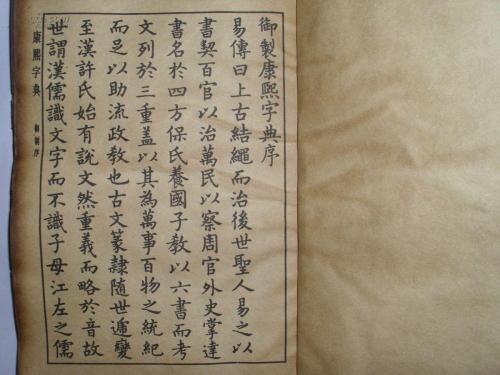 御製康熙字典序
易傳曰上古結繩而治後世聖人易之以
書契百官以治萬民以察周官外史掌達
書名於四方保氏養國子教以六書而考
文列於三重盖以其為萬事百物之統紀
而足以助流政教也古文篆隷隨世遞變
至漢許氏始有說文然重義而略於音故
世謂漢儒識文字而不識子母江左之儒
康熙字典 御製序